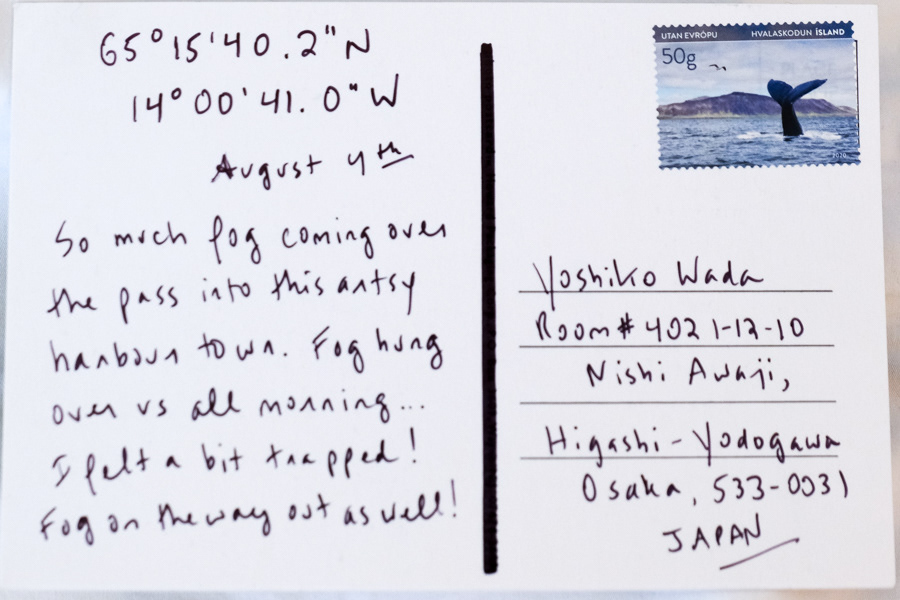 65°15'40.2"N
14°00'41.0"W
August 4th
So much fog coming over
the pass into this artsy
harbour town. Fog hung
over us all morning...
I felt a bit trapped!
Fog on the way out as well!
UTAN EVRÓPU HVALASKOÐUN ÍSLAND
50g
2020
Yoshiko Wada
Room # 402 1-12-10
Nishi Awaji,
Higashi-Yodogawa
Osaka, 533-0031
JAPAN